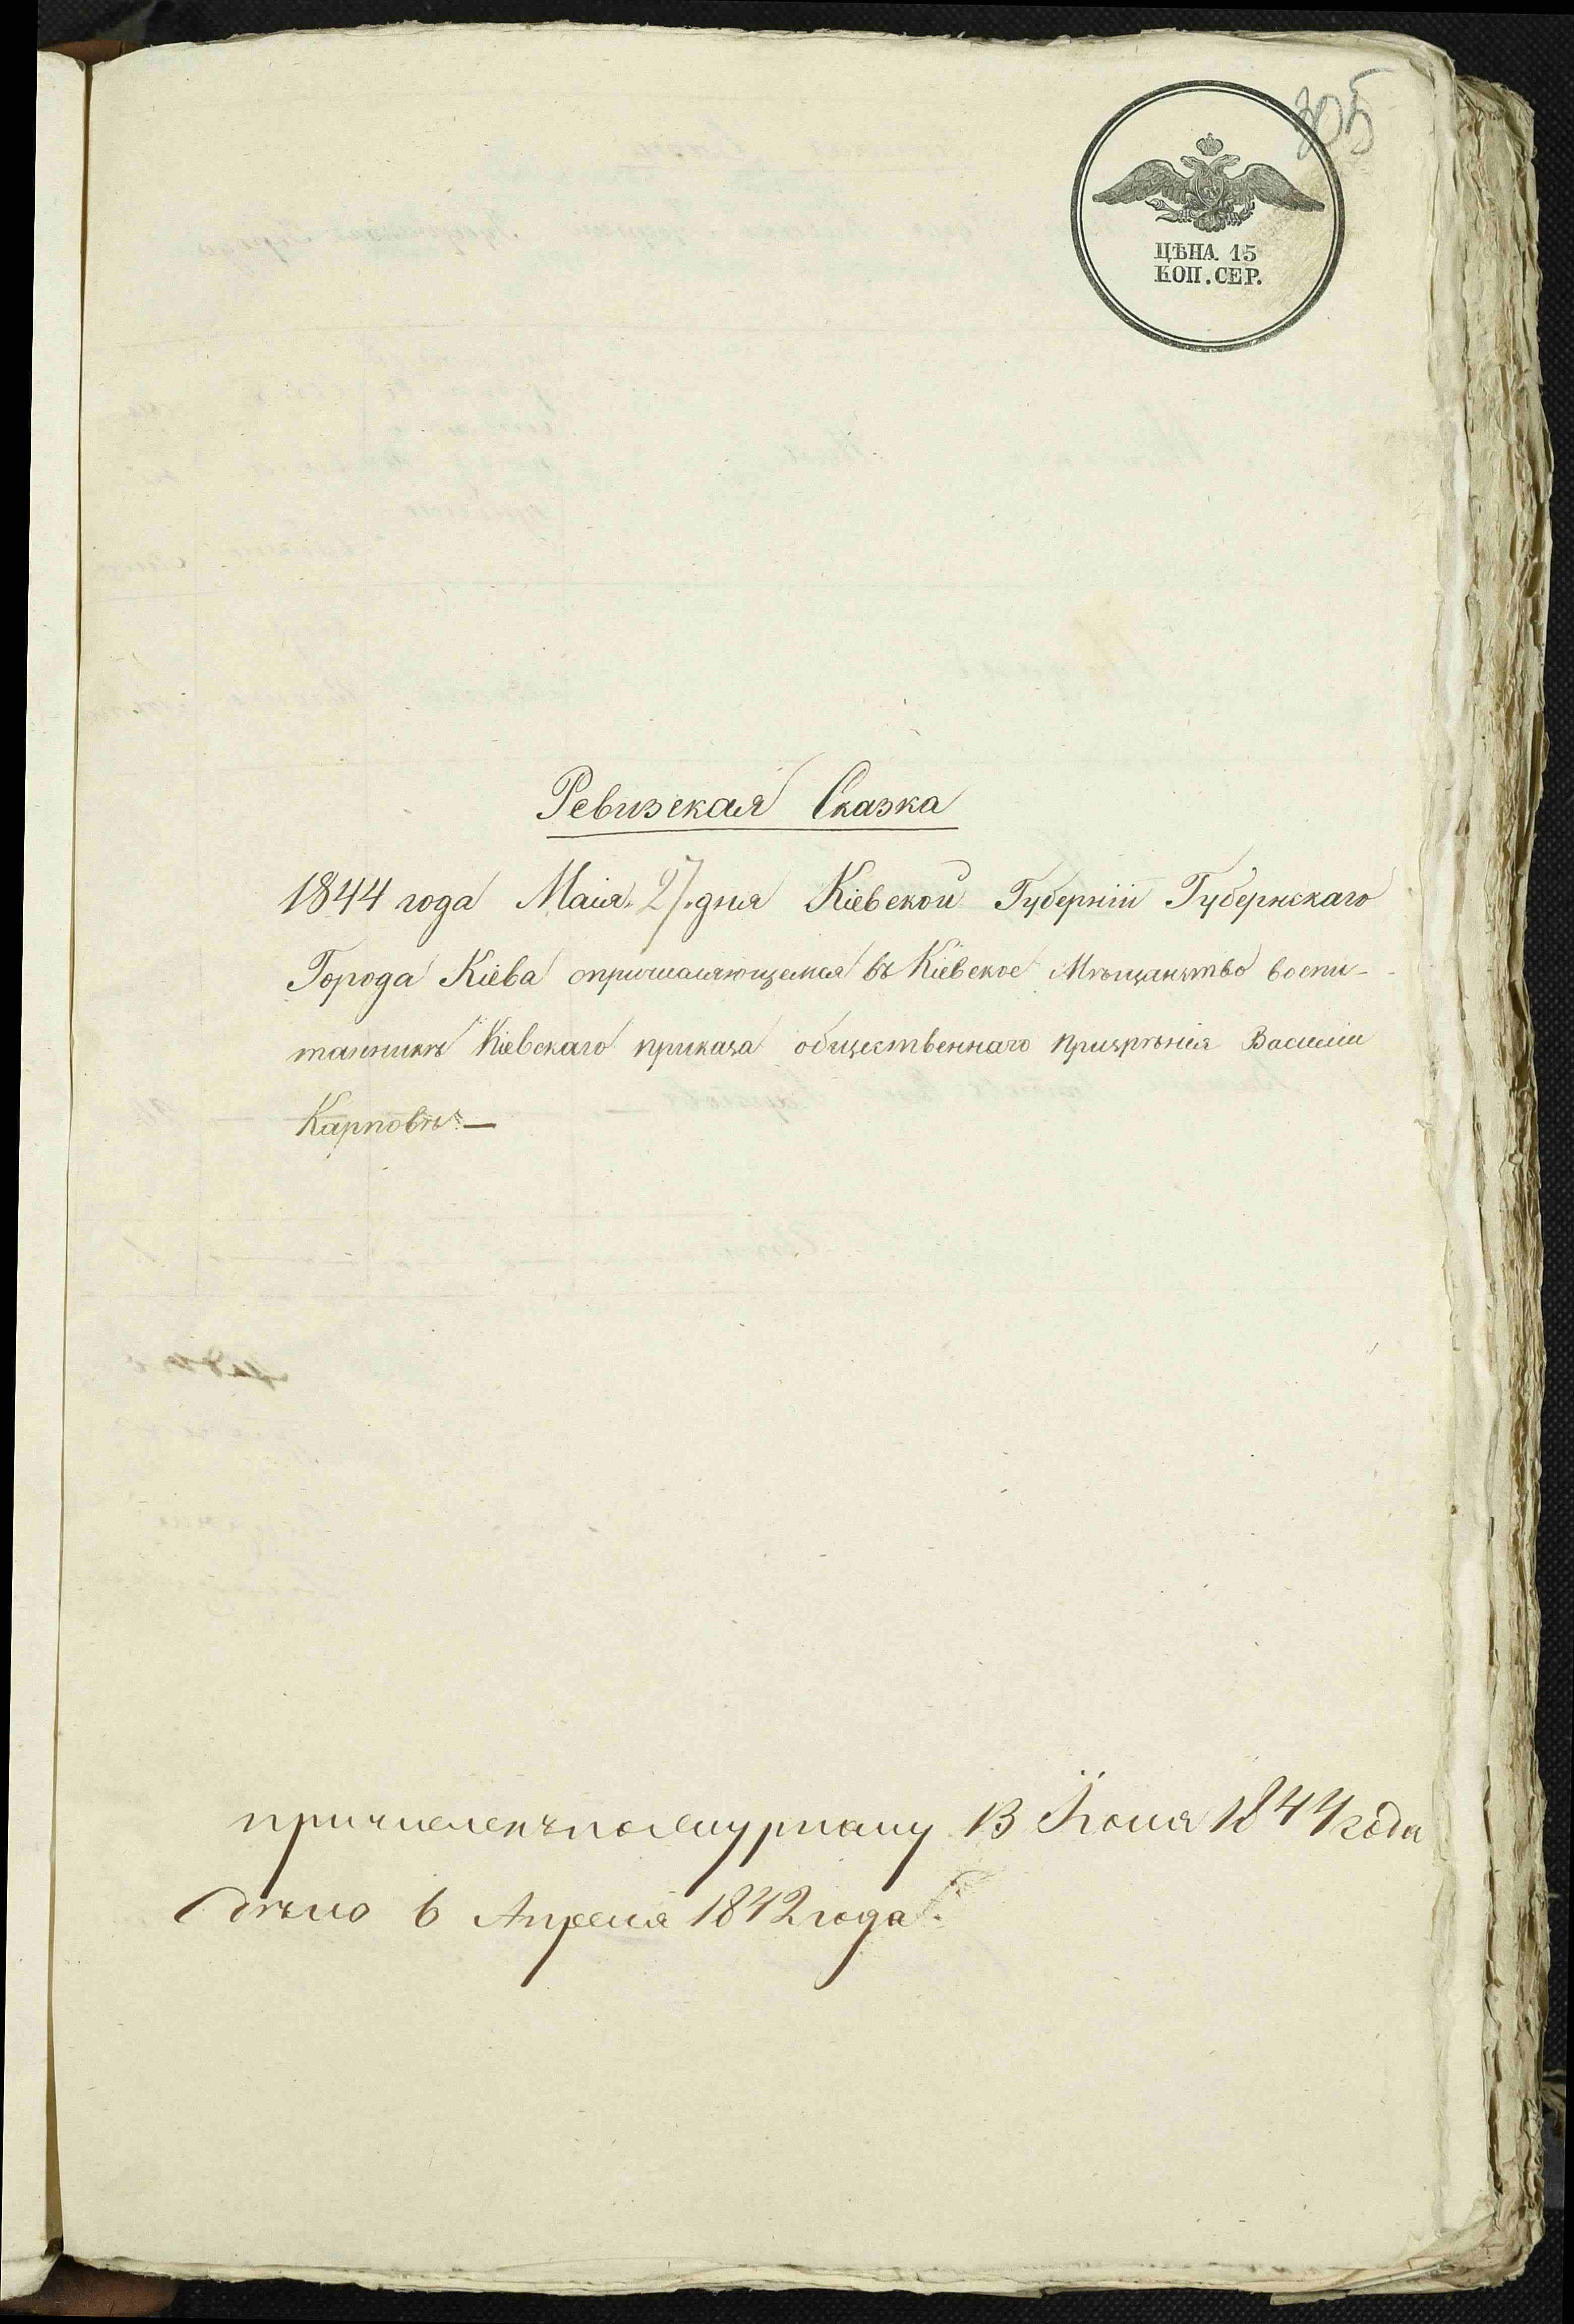 305
ЦѢНА. 15
КОП. СЕР.
Ревизская Сказка
1844 года Маія 27. дня Кіевской Губерніи Губернскаго
Города Кіева опричисляющемся въ Кіевское Мѣщанство воспи-
танникѣ Кіевскаго приказа общественнаго призрѣнія Василіи
Карповѣ.—
причисленъ по журналу 13 Іюня 1844 года
Дѣло 6 Апреля 1842 года.